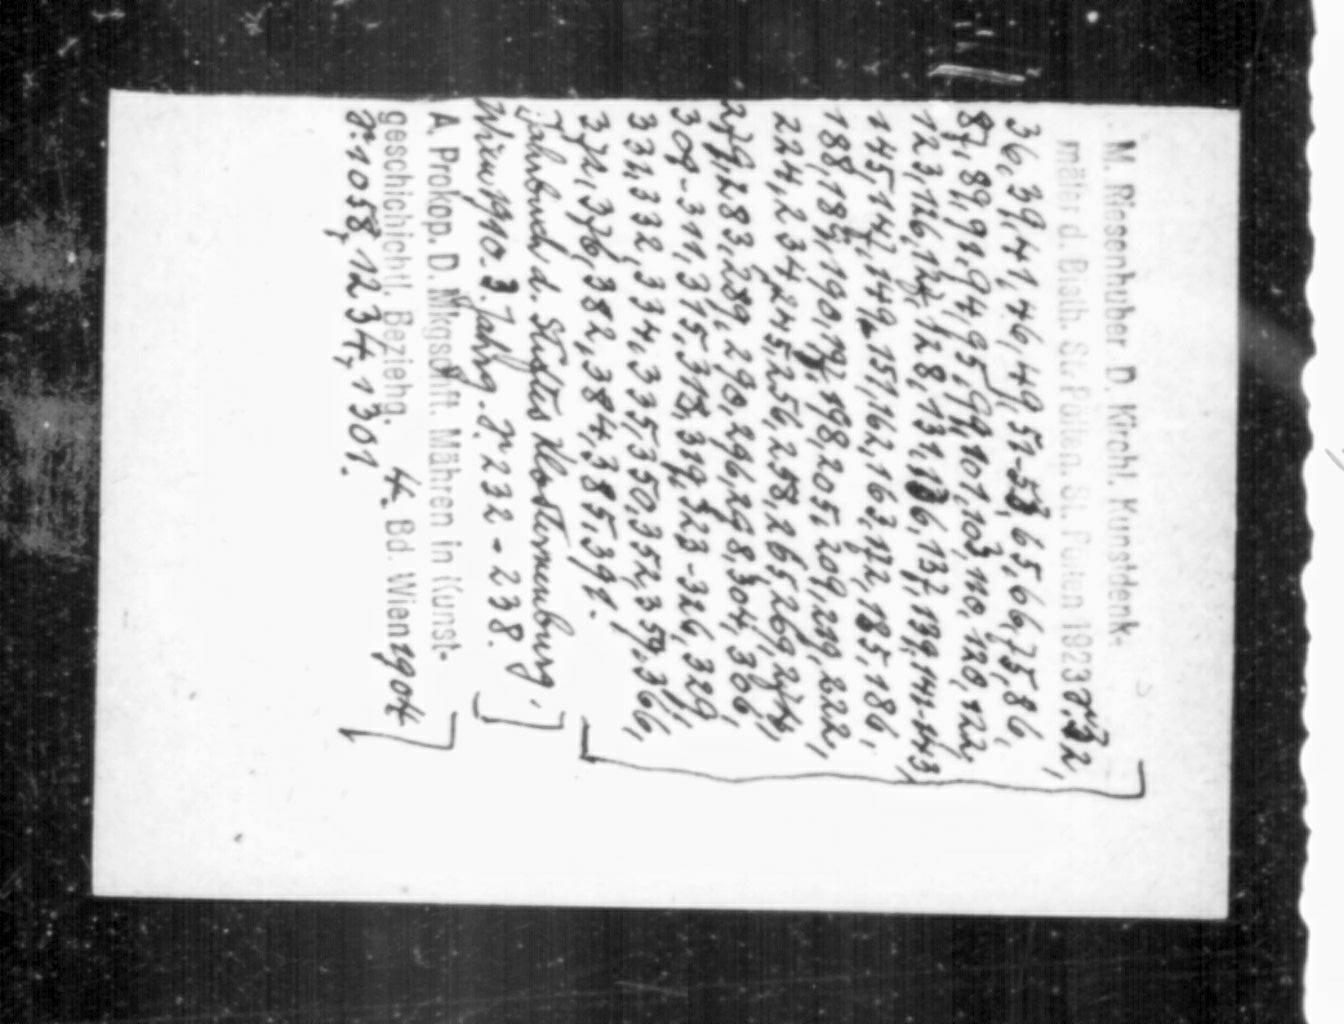 M. Riesenhuber D. Kirchl. Kunstdenk-
mäler d. Bisth. St. Pölten. St. Pölten 1923 S. 32,
36, 39, 41, 46, 49, 51-53, 65, 66, 75, 86,
87, 89, 91, 94, 95, 99, 101, 103, 110, 120, 122,
123, 126, 127, 128, 131, 136, 137, 139, 141-143,
145, 147, 149, 151, 162, 163, 172, 185, 186,
188, 189, 190, 197, 198, 205, 209, 219, 222,
224, 234, 245, 256, 258, 265, 269, 274,
279, 283, 289, 290, 296, 298, 304, 306,
309-311, 315, 318, 319, 323-326, 329,
331, 332, 334, 335, 350, 352, 359, 366,
372, 376, 382, 384, 385, 391.
Jahrbuch d. Stiftes Klosterneuburg,
Wien 1910. 3. Jahrg. S. 232-238.
A. Prokop. D. Mkgschft. Mähren in Kunst-
geschichtl. Beziehg. 4. Bd. Wien 1904
S. 1058, 1234, 1301.